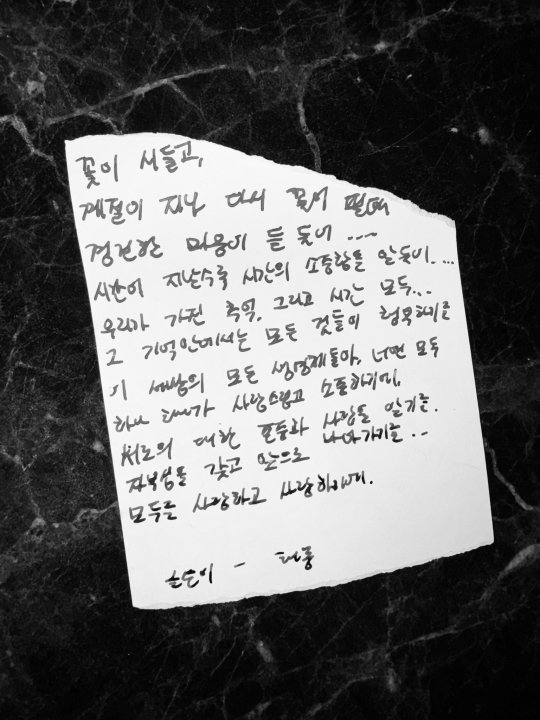 꽃이 시들고,
계절이 지나 다시 꽃이 필때
경건한 마음이 들 듯이 ....
시간이 지날수록 시간의 소중함을 알듯이....
우리가 가진 추억, 그리고 시간 모두...
그 기억안에서는 모든 것들이 행복하기를
이 세상의 모든 생명체들아, 너면 모두
하나 하나가 사랑스럽고 소중하기에,
서로의 대한 존중과 사람을 알기를.
자부심을 갖고 앞으로 나아가기를..
모두를 사랑하고 사랑하기에.